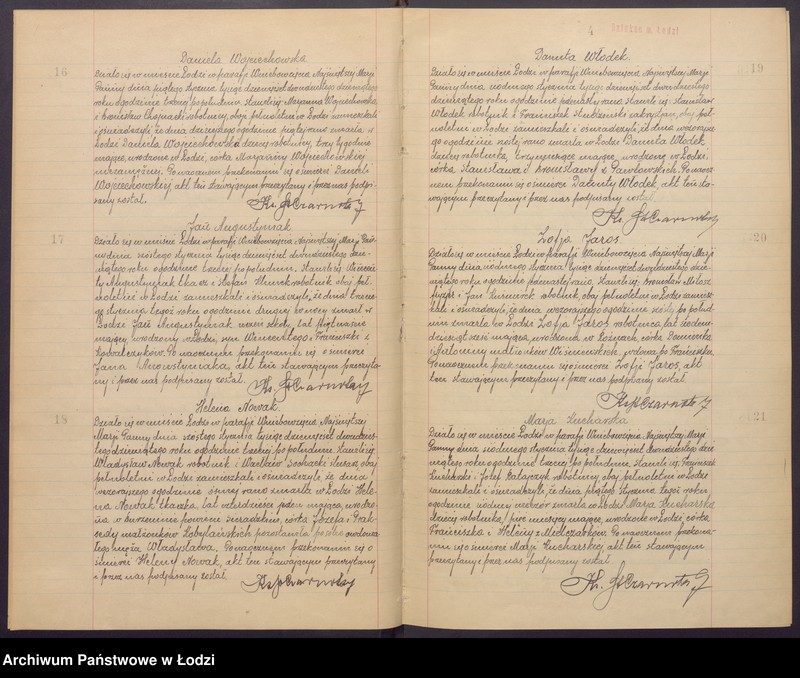 16
Daniela Wojciechowska
Działo się w mieście Łodzi w parafji Wniebowzięcia Najświętszej Marji
Panny dnia piątego stycznia tysiąc dziewięćset dwudziestego dziewiątego
roku o godzinie trzeciej po południu. Stawili się: Marjanna Wojciechowska
i Bronisław robotnicy, oboje pełnoletni w Łodzi zamieszkali
i oświadczyli, że dnia dzisiejszego o godzinie piątej rano zmarła w
Łodzi Daniela Wojciechowska dziecię robotnicy, trzy tygodnie
mające, urodzone w Łodzi, córka Marjanny Wojciechowskiej
niezamężnej. Po naocznem przekonaniu się o śmierci Danieli
Wojciechowskiej, akt ten stawającym przeczytany i przez nas podpi-
sany został.
17
Jan Augustyniak
Działo się w mieście Łodzi w parafji Wniebowzięcia Najświętszej Marji Pan-
ny dnia szóstego stycznia tysiąc dziewięćset dwudziestego dzie-
wiątego roku o godzinie trzeciej po południu. Stawili się: Wincen-
ty Augustyniak tkacz i Stefan robotnik obaj peł-
noletni w Łodzi zamieszkali i oświadczyli, że dnia
stycznia tegoż roku o godzinie drugiej w nocy zmarł w
Łodzi Jan Augustyniak uczeń szkoły, lat
mający, urodzony w Łodzi, syn Wincentego i Franciszki z
Kowalczyków. Po naocznem przekonaniu się o śmierci
Jana Augustyniaka, akt ten stawającym przeczyta-
ny i przez nas podpisany został.
18
Helena Nowak
Działo się w mieście Łodzi w parafji Wniebowzięcia Najświętszej
Marji Panny dnia szóstego stycznia tysiąc dziewięćset dwudzies-
tego dziewiątego roku o godzinie trzeciej po południu. Stawili się:
Władysław Nowak robotnik i Wacław Sochacki ślusarz, obaj
pełnoletni w Łodzi zamieszkali i oświadczyli, że dnia
wczorajszego o godzinie ósmej rano zmarła w Łodzi Hele-
na Nowak tkaczka, lat czterdzieści jeden mająca, urodzo-
na w powiecie sieradzkim, córka Józefa i
małżonków pozostawiła po sobie owdowia-
łego męża Władysława. Po naocznem przekonaniu się o
śmierci Heleny Nowak, akt ten stawającym przeczytany
i przez nas podpisany został.
19
Danuta Włodek
Działo się w mieście Łodzi w parafji Wniebowzięcia Najświętszej Marji
Panny dnia siódmego stycznia tysiąc dziewięćset dwudziestego
dziewiątego roku o godzinie. Stawili się: Stanisław
Włodek robotnik i Franciszek zakrystjan, obaj peł-
noletni w Łodzi zamieszkali i oświadczyli, że dnia wczorajsze-
go o godzinie szóstej rano zmarła w Łodzi Danuta Włodek
dziecię robotnika, trzy miesiące mające, urodzone w Łodzi,
córka Stanisława i Bronisławy z Pawłowskich. Po naocz-
nem przekonaniu się o śmierci Danuty Włodek, akt ten sta-
wającym przeczytany i przez nas podpisany został.
20
Zofja Jaros.
Działo się w mieście Łodzi w parafji Wniebowzięcia Najświętszej Marji
Panny dnia siódmego stycznia tysiąc dziewięćset dwudziestego dzie-
wiątego roku o godzinie. Stawili się: Bronisław
i Jan robotnik, obaj pełnoletni w Łodzi zamiesz-
kali i oświadczyli, że dnia wczorajszego o godzinie szóstej po połud-
niu zmarła w Łodzi Zofja Jaros robotnica, lat siedem-
dziesiąt sześć mająca, urodzona w, córka Dominika
i Salomei małżonków, wdowa po Franciszku.
Po naocznem przekonaniu się o śmierci Zofji Jaros, akt
ten stawającym przeczytany i przez nas podpisany został.
21
Marja Kucharska
Działo się w mieście Łodzi w parafji Wniebowzięcia Najświętszej Marji
Panny dnia siódmego stycznia tysiąc dziewięćset dwudziestego dzie-
wiątego roku o godzinie trzeciej po południu. Stawili się: Franciszek
Kucharski i Józef Ratajczyk robotnicy, obaj pełnoletni w Łodzi
zamieszkali i oświadczyli, że dnia piątego stycznia tegoż roku
o godzinie siódmej wieczór zmarła w Łodzi Marja Kucharska
dziecię robotnika, mające, urodzone w Łodzi, córka
Franciszka i Heleny z. Po naocznem przekona-
niu się o śmierci Marji Kucharskiej, akt ten stawającym
przeczytany i przez nas podpisany został
Archiwum Państwowe w Łodzi